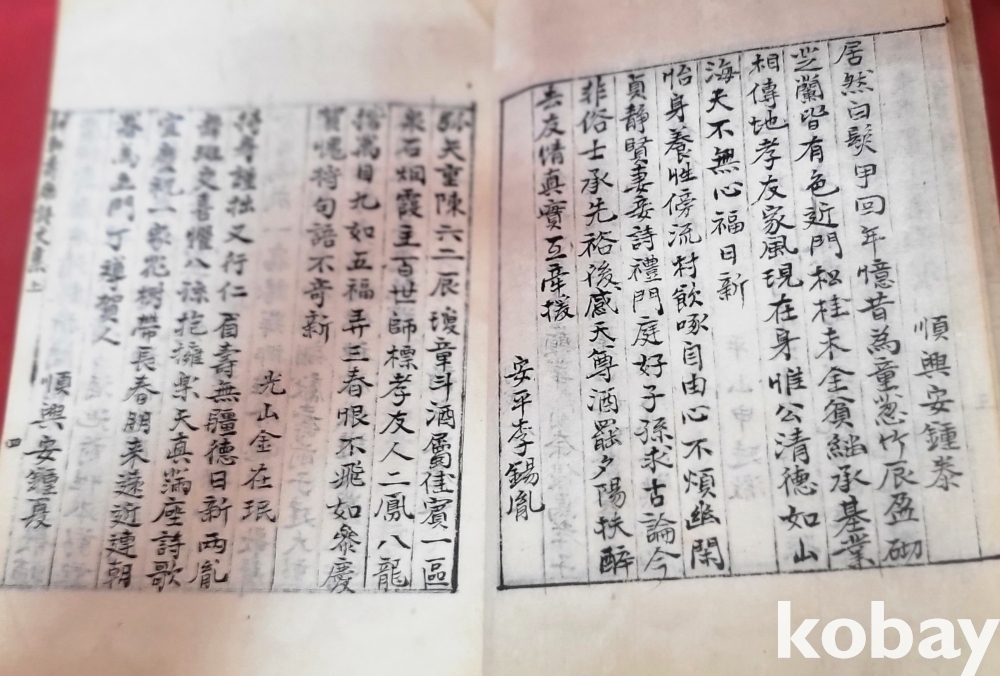 順興安鍾泰
居然白髮甲回年憶昔為童葱竹辰盈砌
芝蘭皆有色近門松桂未全貧継承基業
相傳地孝友家風現在身惟公清德如山
海天不無心福日新
怡身養性傍流村飲啄自由心不煩幽閑
貞静賢妻妾詩禮門庭好子孫求古論今
非俗士承先裕後感天尊酒罷夕陽扶醉
去友情真實互牽援
安平李錫胤
弥矢重陳六二辰瓊章斗酒屬佳賓一區
泉石烟霞主百世師標孝友人二鳳八龍
萬目九如五福弄三春恨不飛如叅慶
賀愧將句語不奇新
光山金在珉
持身謹拙又行仁眉壽無疆德日新兩胤
斑史喜懼八孫抱擁樂天真滿座詩歌
宣慶祝一家花樹帶長春朋来遠近連朝
馬立門丁導賀人
順興安鍾夏
四
kobay